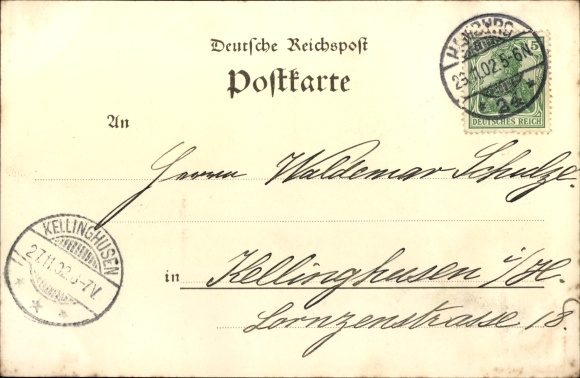 Deutsche Reichspost
Postkarte
HAMBURG
11.02.5-6N.
5
DEUTSCHES REICH
An
Herrn Waldemar Schulze.
KELLINGHUSEN
27.11.02.6-7V.
in Kellinghusen i/H.
Lornzenstrasse 18.